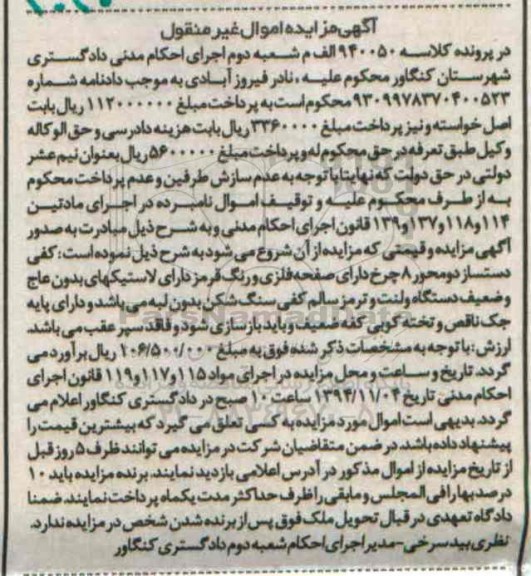 آگهی مزایده اموال غیر منقول
در پرونده کلاسه ۹۴۰۰۵۰ الف م شعبه دوم اجرای احکام مدنی دادگستری
شهرستان کنگاور محکوم علیه ، نادر فیروز آبادی به موجب دادنامه شماره
۹۳۰۹۹۷۸۳۷۰۴۰۰۵۲۳ محکوم است به پرداخت مبلغ ۱۱۲۰۰۰۰۰۰ ریال بابت
اصل خواسته و نیز پرداخت مبلغ ۳۳۶۰۰۰۰ ریال بابت هزینه دادرسی و حق الوکاله
وکیل طبق تعرفه در حق محکوم له و پرداخت مبلغ ۵۶۰۰۰۰۰ ریال بعنوان نیم عشر
دولتی در حق دولت که نهایتا با توجه به عدم سازش طرفین و عدم پرداخت محکوم
به از طرف محکوم علیه و توقیف اموال نامبرده در اجرای مادتین
۱۱۴و۱۱۸و۱۳۷و۱۳۹ قانون اجرای احکام مدنی و به شرح ذیل مبادرت به صدور
آگهی مزایده و قیمتی که مزایده از آن شروع می شود به شرح ذیل نموده است : کفی
دستساز دومحور ۸چرخ دارای صفحه فلزی و رنگ قرمز دارای لاستیکهای بدون عاج
و ضعیف دستگاه ولنت و ترمز سالم کفی سنگ شکن بدون لبه می باشد و دارای پایه
جک ناقص و تخته کوبی کفه ضعیف و باید بازسازی شود و فاقد سپر عقب می باشد.
ارزش : با توجه به مشخصات ذکر شده فوق به مبلغ ۱۰۶/۵۰۰/۰۰۰ ریال برآورد می
گردد. تاریخ و ساعت و محل مزایده در اجرای مواد ۱۱۵و۱۱۷و۱۱۹ قانون اجرای
احکام مدنی تاریخ ۱۳۹۴/۱۱/۰۴ ساعت ۱۰ صبح در دادگستری کنگاور اعلام می
گردد. بدیهی است اموال مورد مزایده به کسی تعلق می گیرد که بیشترین قیمت را
پیشنهاد داده باشد. در ضمن متقاضیان شرکت در مزایده می توانند ظرف ۵ روز قبل
از تاریخ مزایده از اموال مذکور در آدرس اعلامی بازدید نمایند. برنده مزایده باید ۱۰
درصد بها را فی المجلس و مابقی را ظرف حداکثر مدت یکماه پرداخت نمایند. ضمنا
دادگاه تعهدی در قبال تحویل ملک فوق پس از برنده شدن شخص در مزایده ندارد.
نظری بیدسرخی-مدیر اجرای احکام شعبه دوم دادگستری کنگاور